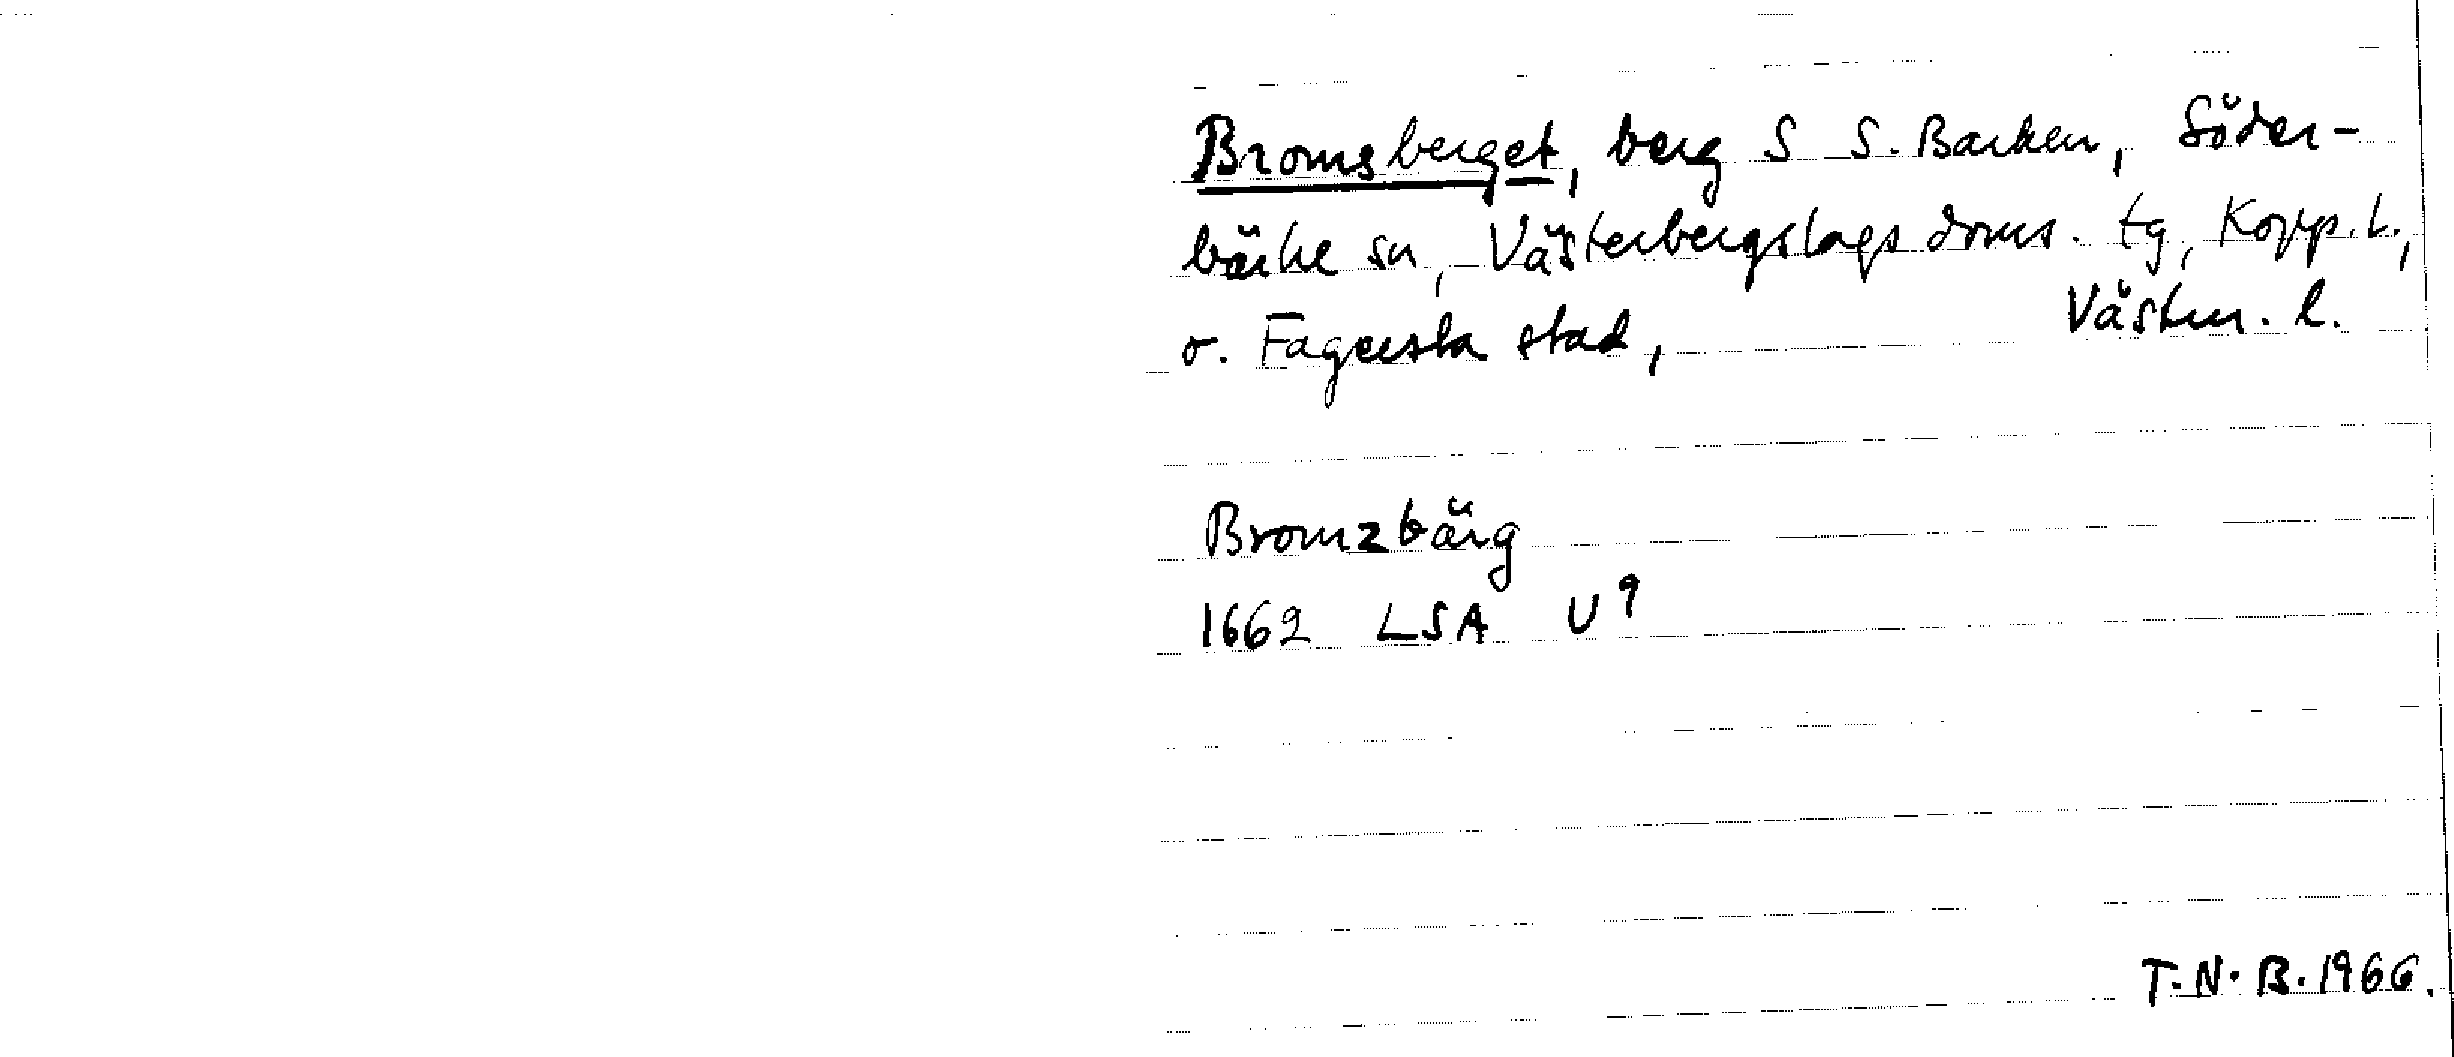 Bromsberget, berg S S. Barken, Söder-
bärke sn, Västerbergslags doms. tg, Kopp. l.,
o. Fagersta stad, Västm. l.
Bromzbärg
1662 LSA U 9
T.N.B. 1966.